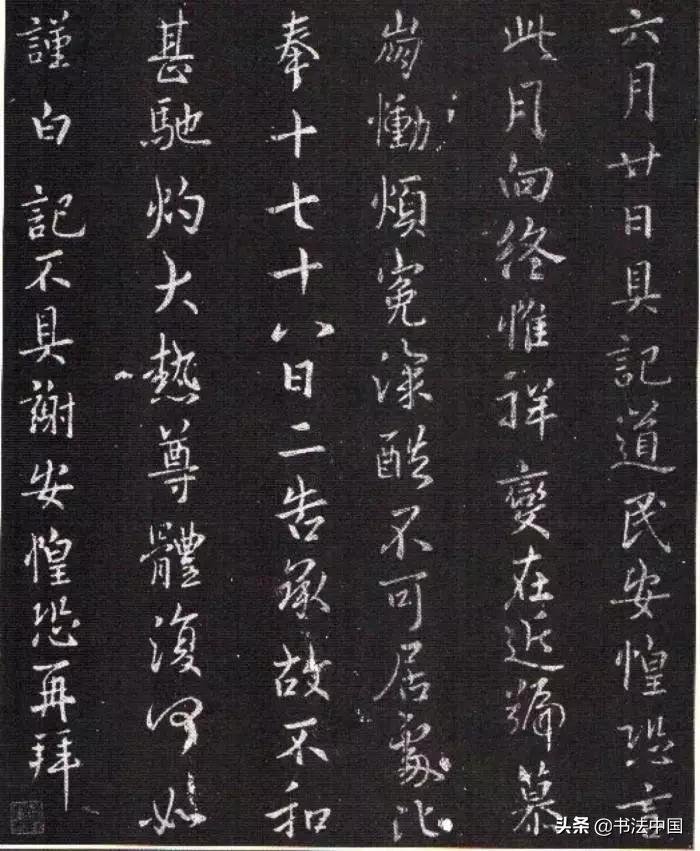 六月廿日具記道民安惶恐言
此月向終惟祥變在近號慕
崩慟煩冤深酷不可居處比
奉十七十八日二告承故不和
甚馳灼大熱尊體復何如
謹白記不具謝安惶恐再拜
头条 @书法中国